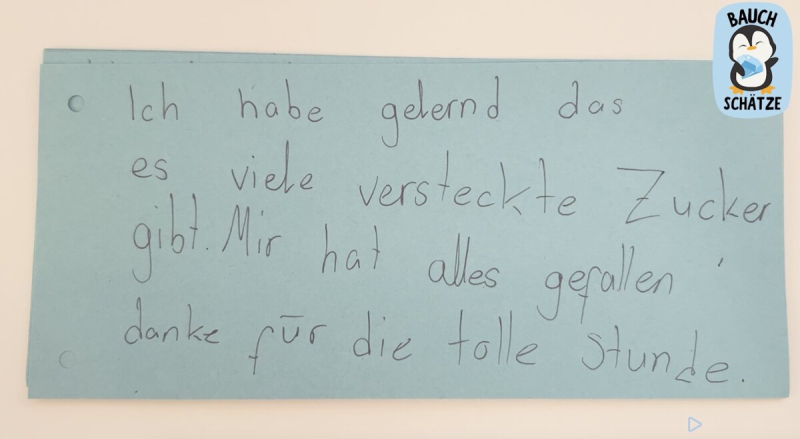 BAUCH
SCHÄTZE
Ich habe gelernd das
es viele versteckte Zucker
gibt. Mir hat alles gefallen '
danke für die tolle Stunde.